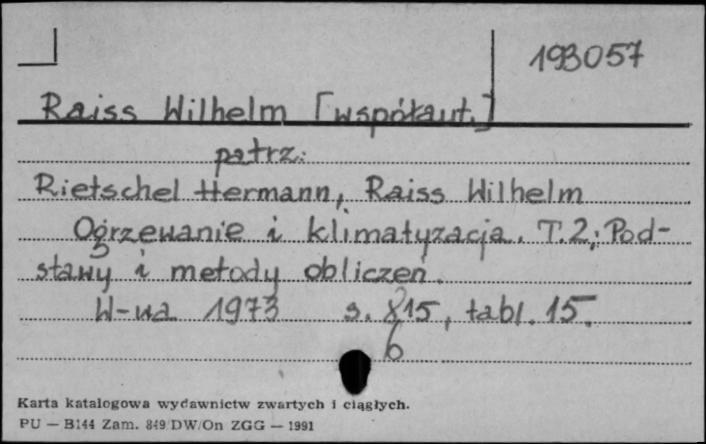 193057
Raiss Wilhelm [współaut.]
patrz:
Rietschel Hermann, Raiss Wilhelm
Ogrzewanie i klimatyzacja. T.2: Pod-
stawy i metody obliczeń.
W-wa 1973 s. 815, tabl. 15.
6
Karta katalogowa wydawnictw zwartych i ciągłych.
PU — B144 Zam. 849/DW/On ZGG — 1991